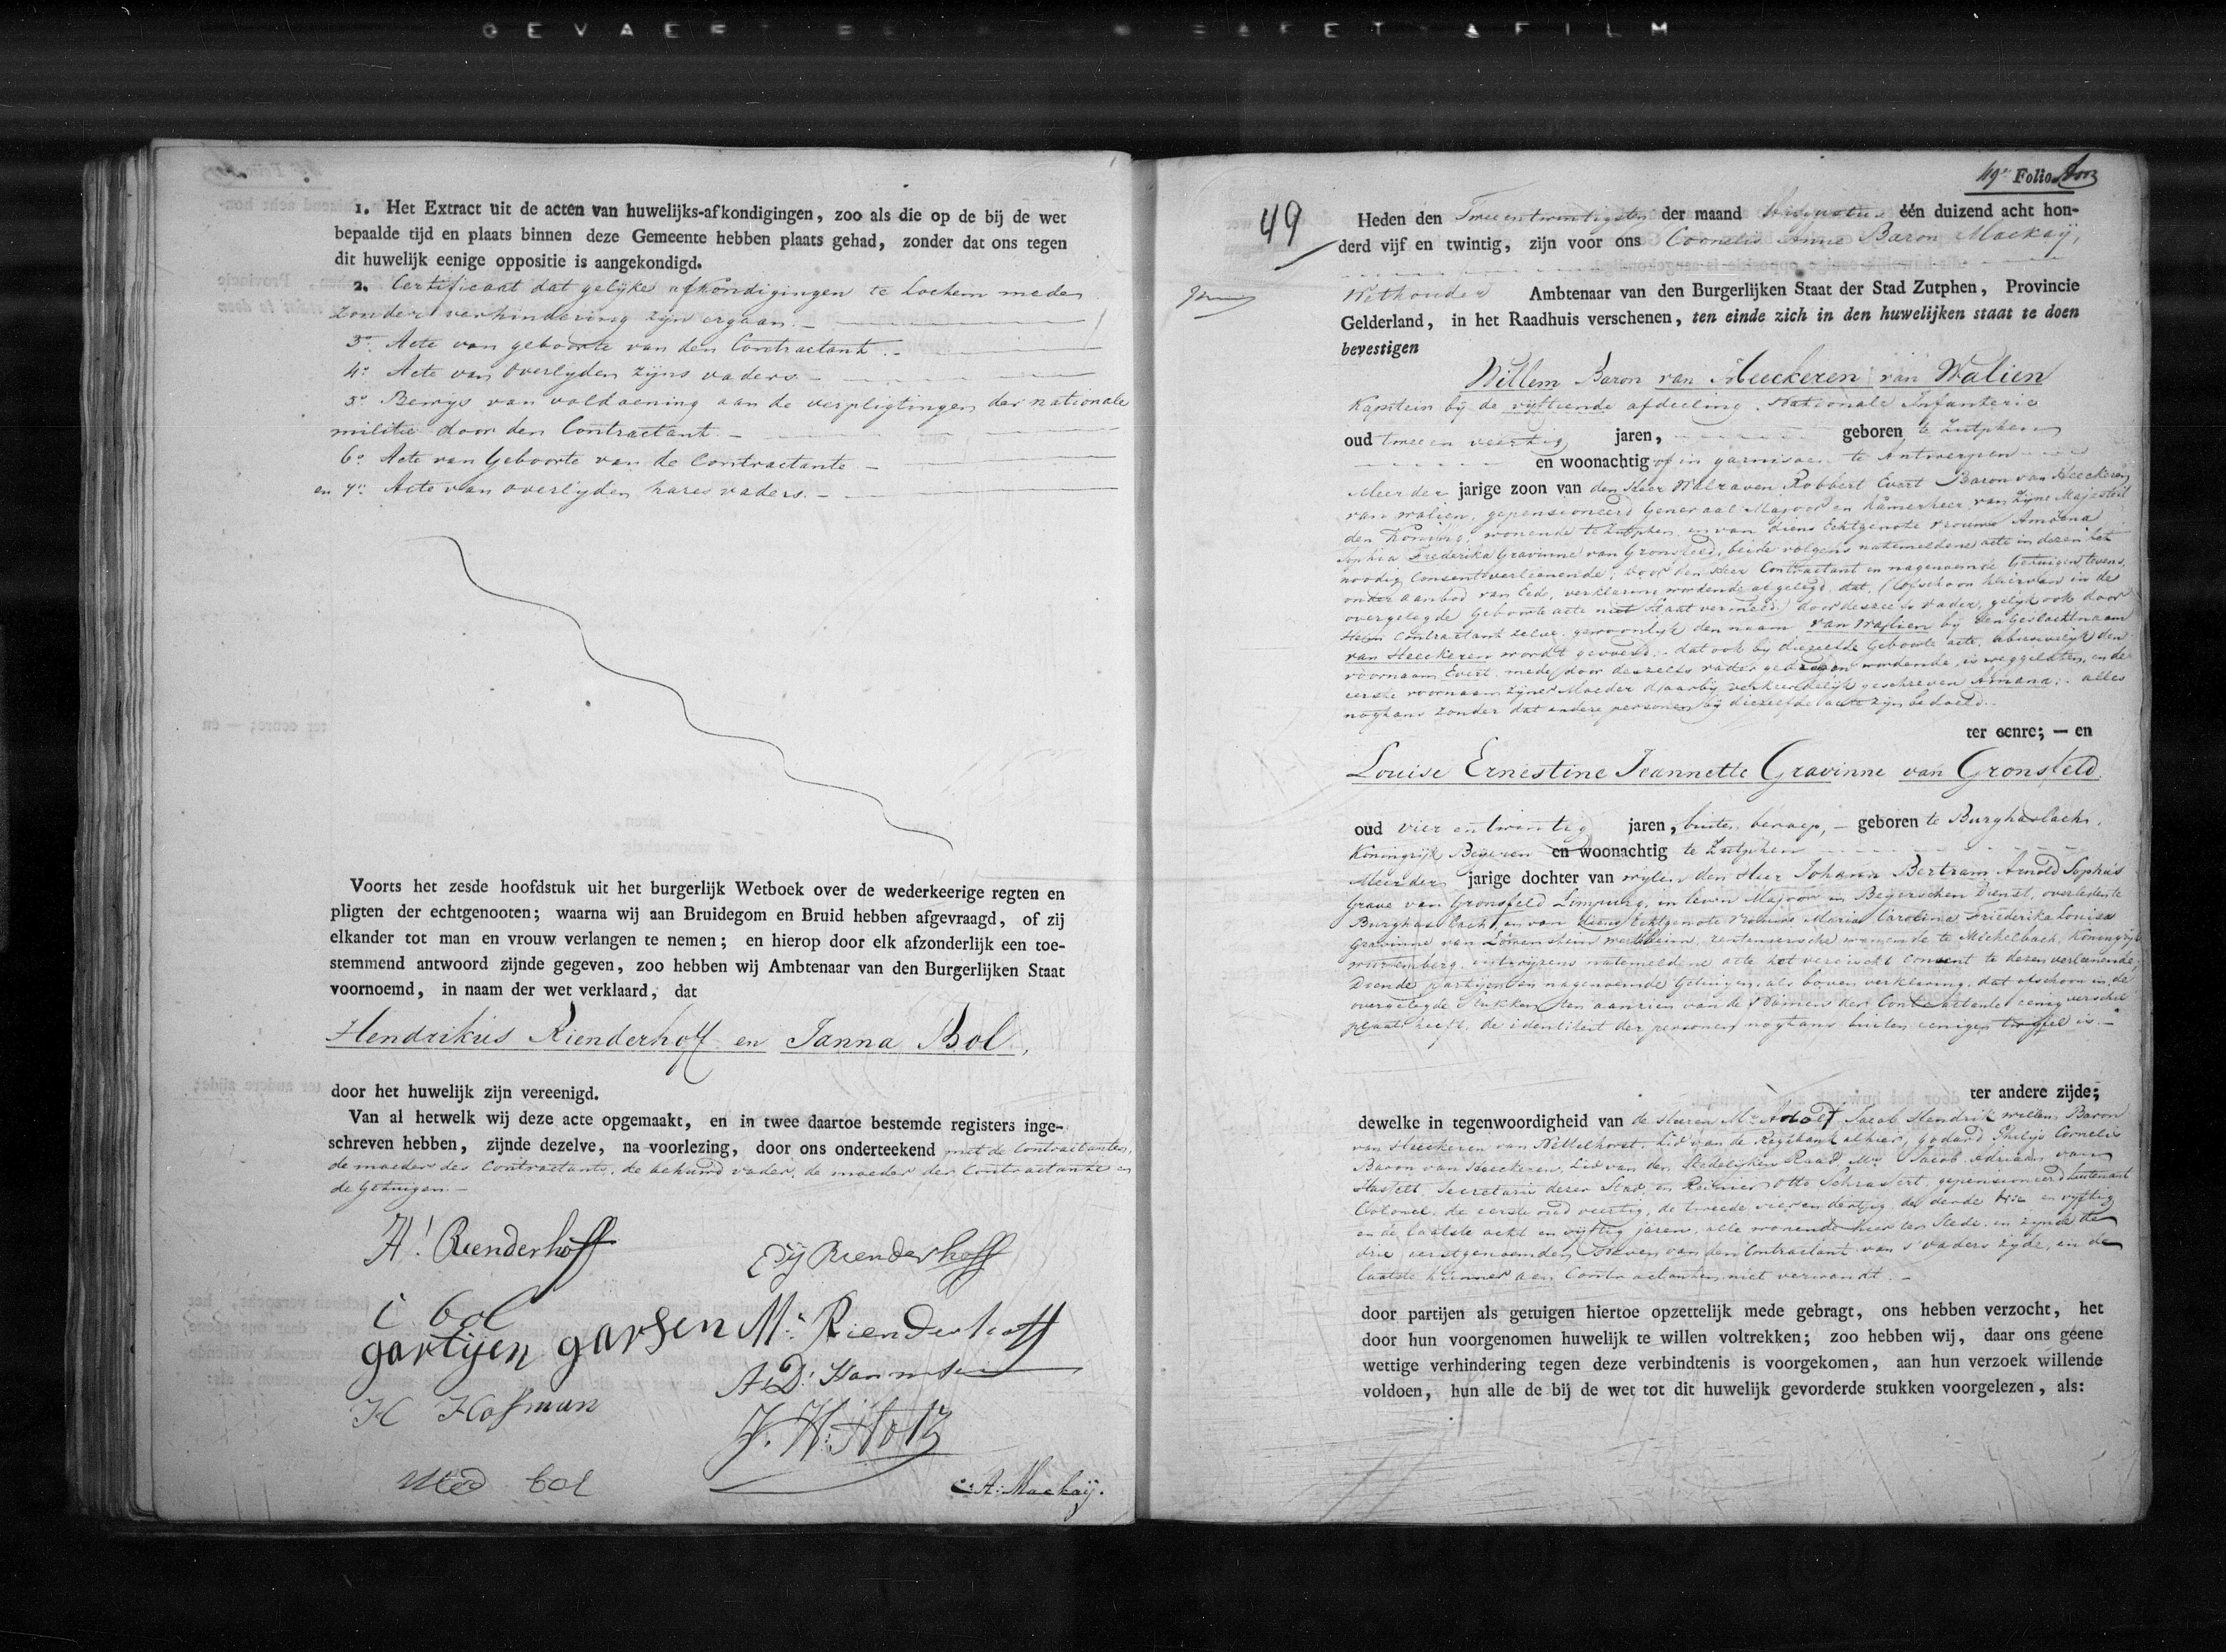 GEVAERT SAFETY FILM
1. Het Extract uit de acten van huwelijks-afkondigingen, zoo als die op de bij de wet
bepaalde tijd en plaats binnen deze Gemeente hebben plaats gehad, zonder dat ons tegen
dit huwelijk eenige oppositie is aangekondigd.
2. Certificaat dat gelijke afkondigingen te Lochem mede
zonder verhindering zijn ergaan. —
3o. Acte van geboorte van den Contractant. —
4o. Acte van overlyden zijns vaders —
5o Bewijs van voldoening aan de verpligtingen der nationale
militie door den Contractant. —
6o Acte van Geboorte van de Contractante —
en 7o. Acte van overlijden hares vaders. —
Voorts het zesde hoofdstuk uit het burgerlijk Wetboek over de wederkeerige regten en
pligten der echtgenooten; waarna wij aan Bruidegom en Bruid hebben afgevraagd, of zij
elkander tot man en vrouw verlangen te nemen; en hierop door elk afzonderlijk een toe-
stemmend antwoord zijnde gegeven, zoo hebben wij Ambtenaar van den Burgerlijken Staat
voornoemd, in naam der wet verklaard, dat
Hendrikus Rienderhoff en Janna Bol,
door het huwelijk zijn vereenigd.
Van al hetwelk wij deze acte opgemaakt, en in twee daartoe bestemde registers inge-
schreven hebben, zijnde dezelve, na voorlezing, door ons onderteekend met de Contractanten,
de moeder des Contractants, de behuwd vader, de moeder der Contractante en
de Getuigen. —
H! Rienderhoff
Rienderhoff
Bol
gartijen garsen
M: Rienderhoff
A:D: Harmsen
H Hofman
J. H: Holtz
bol
C: A: Mackaij.
49e Folio
49
Heden den Tweeentwintigsten der maand Augustus één duizend acht hon-
derd vijf en twintig, zijn voor ons Cornelis Anne Baron Mackaij,
Wethouder Ambtenaar van den Burgerlijken Staat der Stad Zutphen, Provincie
Gelderland, in het Raadhuis verschenen, ten einde zich in den huwelijken staat te doen
bevestigen
Willem Baron van Heeckeren van Walien
Kapitein bij de vyftiende afdeeling Nationale Infanterie
oud twee en veertig jaren, geboren te Zutphen
en woonachtig of in garnisoen te Antwerpen
Meerder jarige zoon van den Heer Walraven Robbert Evert Baron van Heeckeren
van Walien, gepensioneerd Generaal Majoor en Kamerheer van Zijne Majesteit
den Koning, wonende te Zutphen en van diens Echtgenote Vrouwe Amoena
Sophia Frederika Gravinne van Gronsfeld, beide volgens natemeldene acte in dezen het
noodig Consent verleenende; door den Heer Contractant en nagenoemde Getuigen tevens,
onder aanbod van Eede, verklaring wordende afgelegd, dat, (ofschoon hiervan in de
overgelegde Geboorte acte niet staat vermeld) door deszelfs vader, gelijk ook door
Heer Contractant zelve, gewoonlijk den naam van Walien bij den Geslachtnaam
van Heeckeren wordt gevoerd, - dat ook bij diezelfde Geboorte acte, abusivelijk den
voornaam Evert, mede door deszelfs vader gedragen wordende, is weggelaten, en de
eerste voornaam zijner Moeder daarbij verkeerdelijk geschreven Amana; alles
nogtans zonder dat andere personen bij diezelfde acte zijn bedoeld. —
ter eenre; — en
Louise Ernestine Jeannette Gravinne van Gronsfeld.
oud vier en twintig jaren, buiten beroep, — geboren te Burghaslach,
Koningrijk Beijeren en woonachtig te Zutphen
Meerder jarige dochter van wylen den Heer Johann Bertram Arnold Sophus
Grave van Gronsfeld Limpurg, in leven Majoor in Beijerschen Dienst, overleden te
Burghaslach, en van diens Echtgenote Vrouwe Maria Carolina Friederika Louisa
Gravinne van Löwenstein Wertheim, rentenierse wonende te Michelbach, Koningrijk
Wurtemberg, uitwijzens natemeldene acte het vereischt Consent te dezen verleenende;
Doende partijen en nagenoemde Getuigen, als boven verklaring, dat ofschoon in de
overgelegde stukken ten aanzien van de namens der Contractante eenig verschil
plaats heeft, de identiteit der personen nogtans buiten eenigen twijffel is. —
ter andere zijde;
dewelke in tegenwoordigheid van de Heeren Mr. Adolf Jacob Hendrik Willem Baron
van Heeckeren van Nettelhorst, Lid van de Regtbank alhier, Godard Philip Cornelis
Baron van Heeckeren, Lid van den Stedelijken Raad, Mr. Jacob Adriaan van
Hasselt Secretaris dezer Stad, en Reinier Otto Schrassert, gepensioneerd Luitenant
Colonel, de eerste oud veertig, de tweede vier en dertig, de derde drie en vyftig
en de laatste acht en vijftig jaren, alle wonende hier ter Stede, en zijnde de
drie eerstgenoemden Neven van den Contractant van 's vaders zijde, en de
laatste hunner aan Contractanten niet verwandt. —
door partijen als getuigen hiertoe opzettelijk mede gebragt, ons hebben verzocht, het
door hun voorgenomen huwelijk te willen voltrekken; zoo hebben wij, daar ons geene
wettige verhindering tegen deze verbindtenis is voorgekomen, aan hun verzoek willende
voldoen, hun alle de bij de wet tot dit huwelijk gevorderde stukken voorgelezen, als: